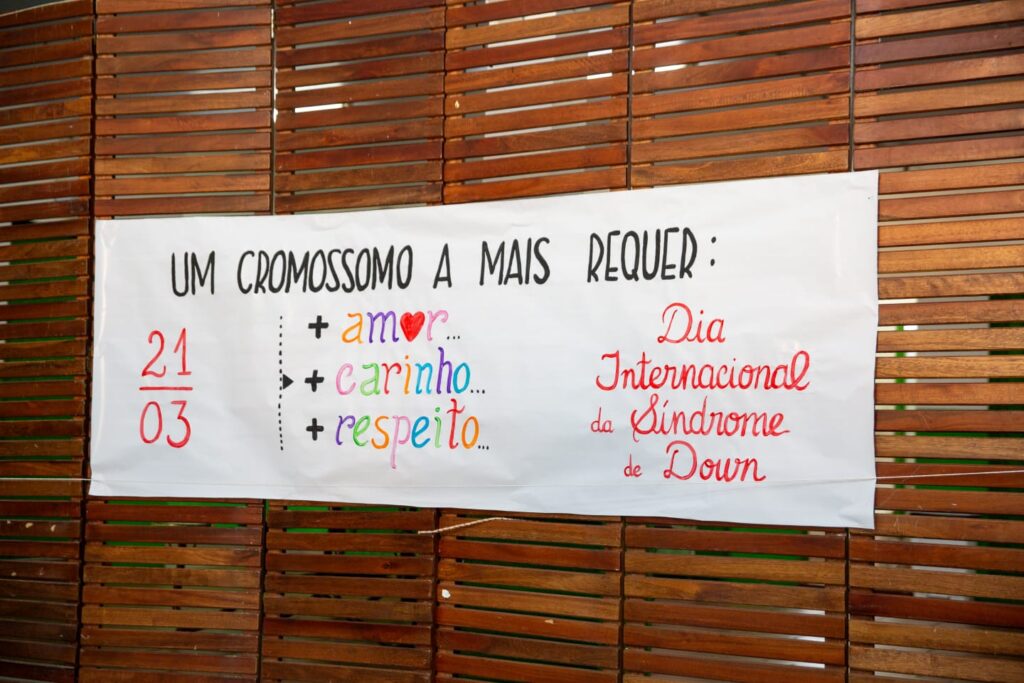 UM CROMOSSOMO A MAIS REQUER:
21
03
+ amor...
+ carinho...
+ respeito...
Dia
Internacional
da Síndrome
de Down